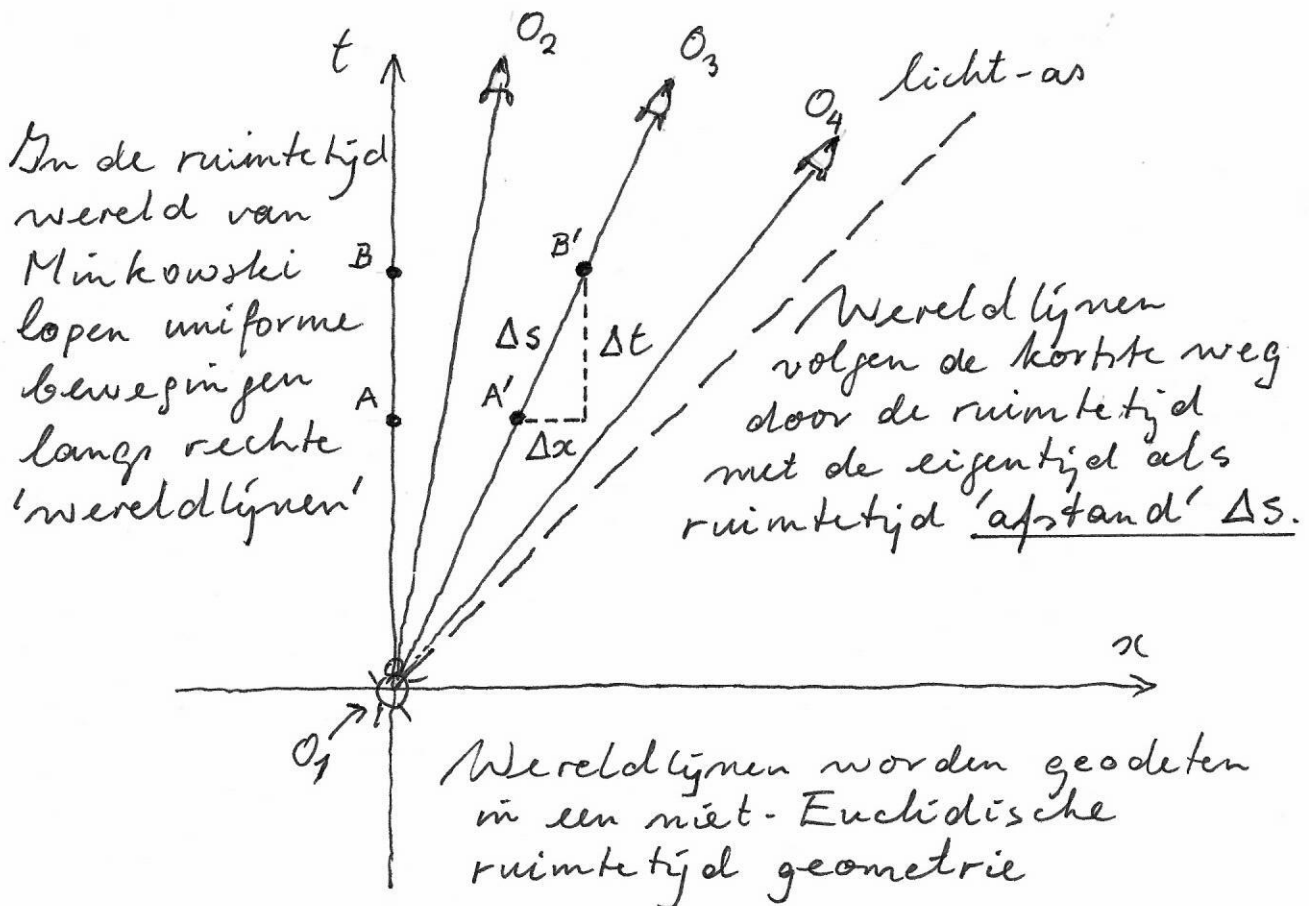 t
O₂
O₃
O₄
licht-as
In de ruimtetijd
wereld van
Minkowski
lopen uniforme
bewegingen
langs rechte
'wereldlijnen'
B
A
B'
A'
Δs
Δt
Δx
Wereldlijnen
volgen de kortste weg
door de ruimtetijd
met de eigentijd als
ruimtetijd 'afstand' Δs.
x
O₁
Wereldlijnen worden geodeten
in een niet-Euclidische
ruimtetijd geometrie